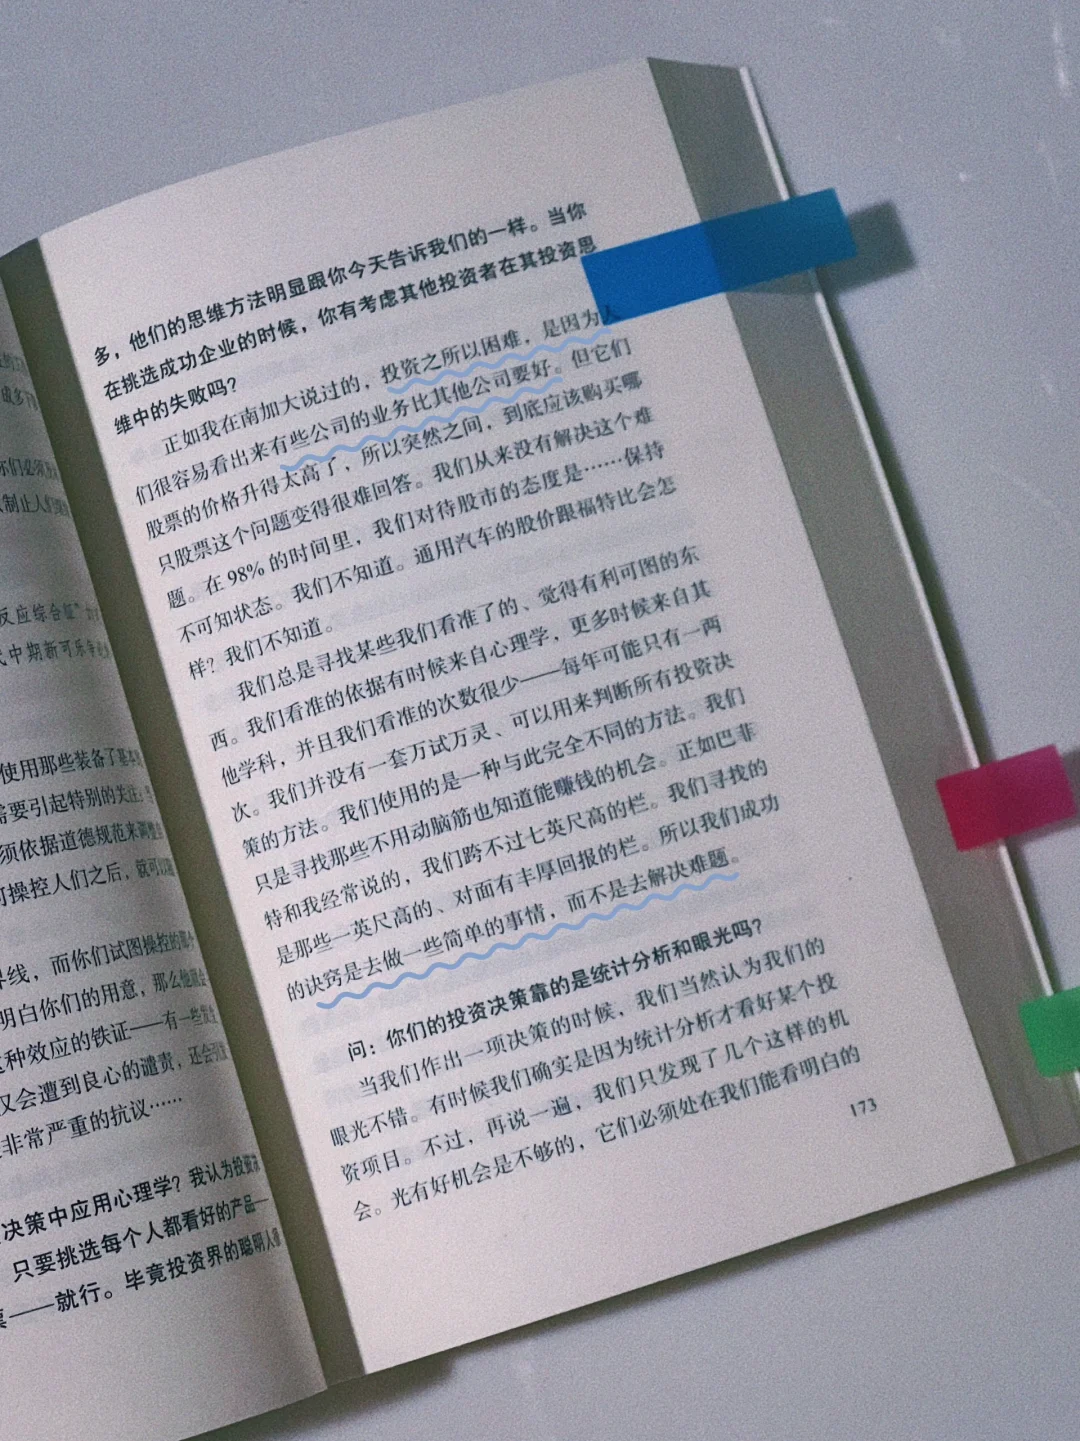 你们必须
制止人们
反应综合征”
代中期新可乐
使用那些装备了基本
需要引起特别的关注：当
须依据道德规范来调整
可操控人们之后，就可以
界线，而你们试图操控的那个
明白你们的用意，那么他就会
这种效应的铁证——有一些发生
仅会遭到良心的谴责，还会引发
非常严重的抗议……
决策中应用心理学？我认为投资决
只要挑选每个人都看好的产品——
票——就行。毕竟投资界的聪明人那
多，他们的思维方法明显跟你今天告诉我们的一样。当你
在挑选成功企业的时候，你有考虑其他投资者在其投资思
维中的失败吗？
正如我在南加大说过的，投资之所以困难，是因为人
们很容易看出来有些公司的业务比其他公司要好。但它们
股票的价格升得太高了，所以突然之间，到底应该购买哪
只股票这个问题变得很难回答。我们从来没有解决这个难
题。在98%的时间里，我们对待股市的态度是……保持
不可知状态。我们不知道。通用汽车的股价跟福特比会怎
样？我们不知道。
我们总是寻找某些我们看准了的、觉得有利可图的东
西。我们看准的依据有时候来自心理学，更多时候来自其
他学科，并且我们看准的次数很少——每年可能只有一两
次。我们并没有一套万试万灵、可以用来判断所有投资决
策的方法。我们使用的是一种与此完全不同的方法。我们
只是寻找那些不用动脑筋也知道能赚钱的机会。正如巴菲
特和我经常说的，我们跨不过七英尺高的栏。我们寻找的
是那些一英尺高的、对面有丰厚回报的栏。所以我们成功
的诀窍是去做一些简单的事情，而不是去解决难题。
问：你们的投资决策靠的是统计分析和眼光吗？
当我们作出一项决策的时候，我们当然认为我们的
眼光不错。有时候我们确实是因为统计分析才看好某个投
资项目。不过，再说一遍，我们只发现了几个这样的机
会。光有好机会是不够的，它们必须处在我们能看明白的
173